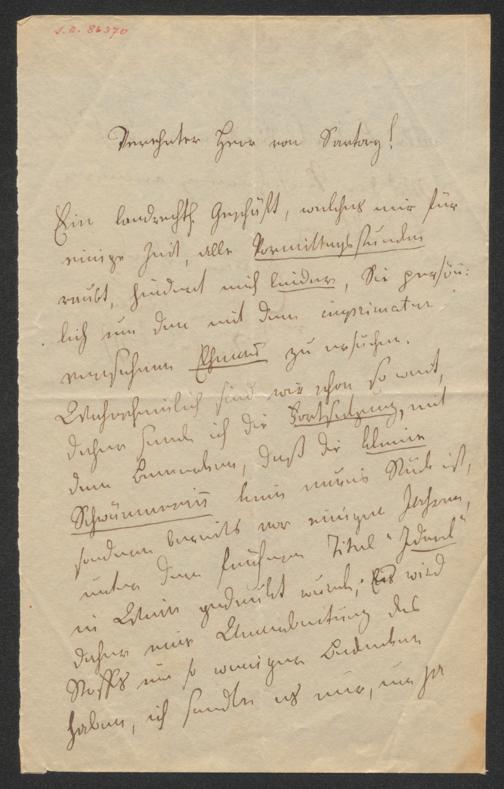 J.N. 86370
Verehrter Herr von Sartory!
Ein landrechtl. Geschäft, welches mir für
einige Zeit, alle Vormittagsstunden
raubt, hindert mich leider, Sie persön-
lich um den mit dem imprimatur
versehenen zu ersuchen.
Wahrscheinlich sind wir schon so weit,
daher sende ich die Fortsetzung, mit
dem Bemerken, daß die kleine
Schwärmerin kein neues Stück ist,
sondern bereits vor einigen Jahren,
unter dem früheren Titel "Ideal"
in gedruckt wurde; Es wird
daher eine Umarbeitung des
Stoffs um so weniger Bedenken
haben, ich sandte es nur, um ja